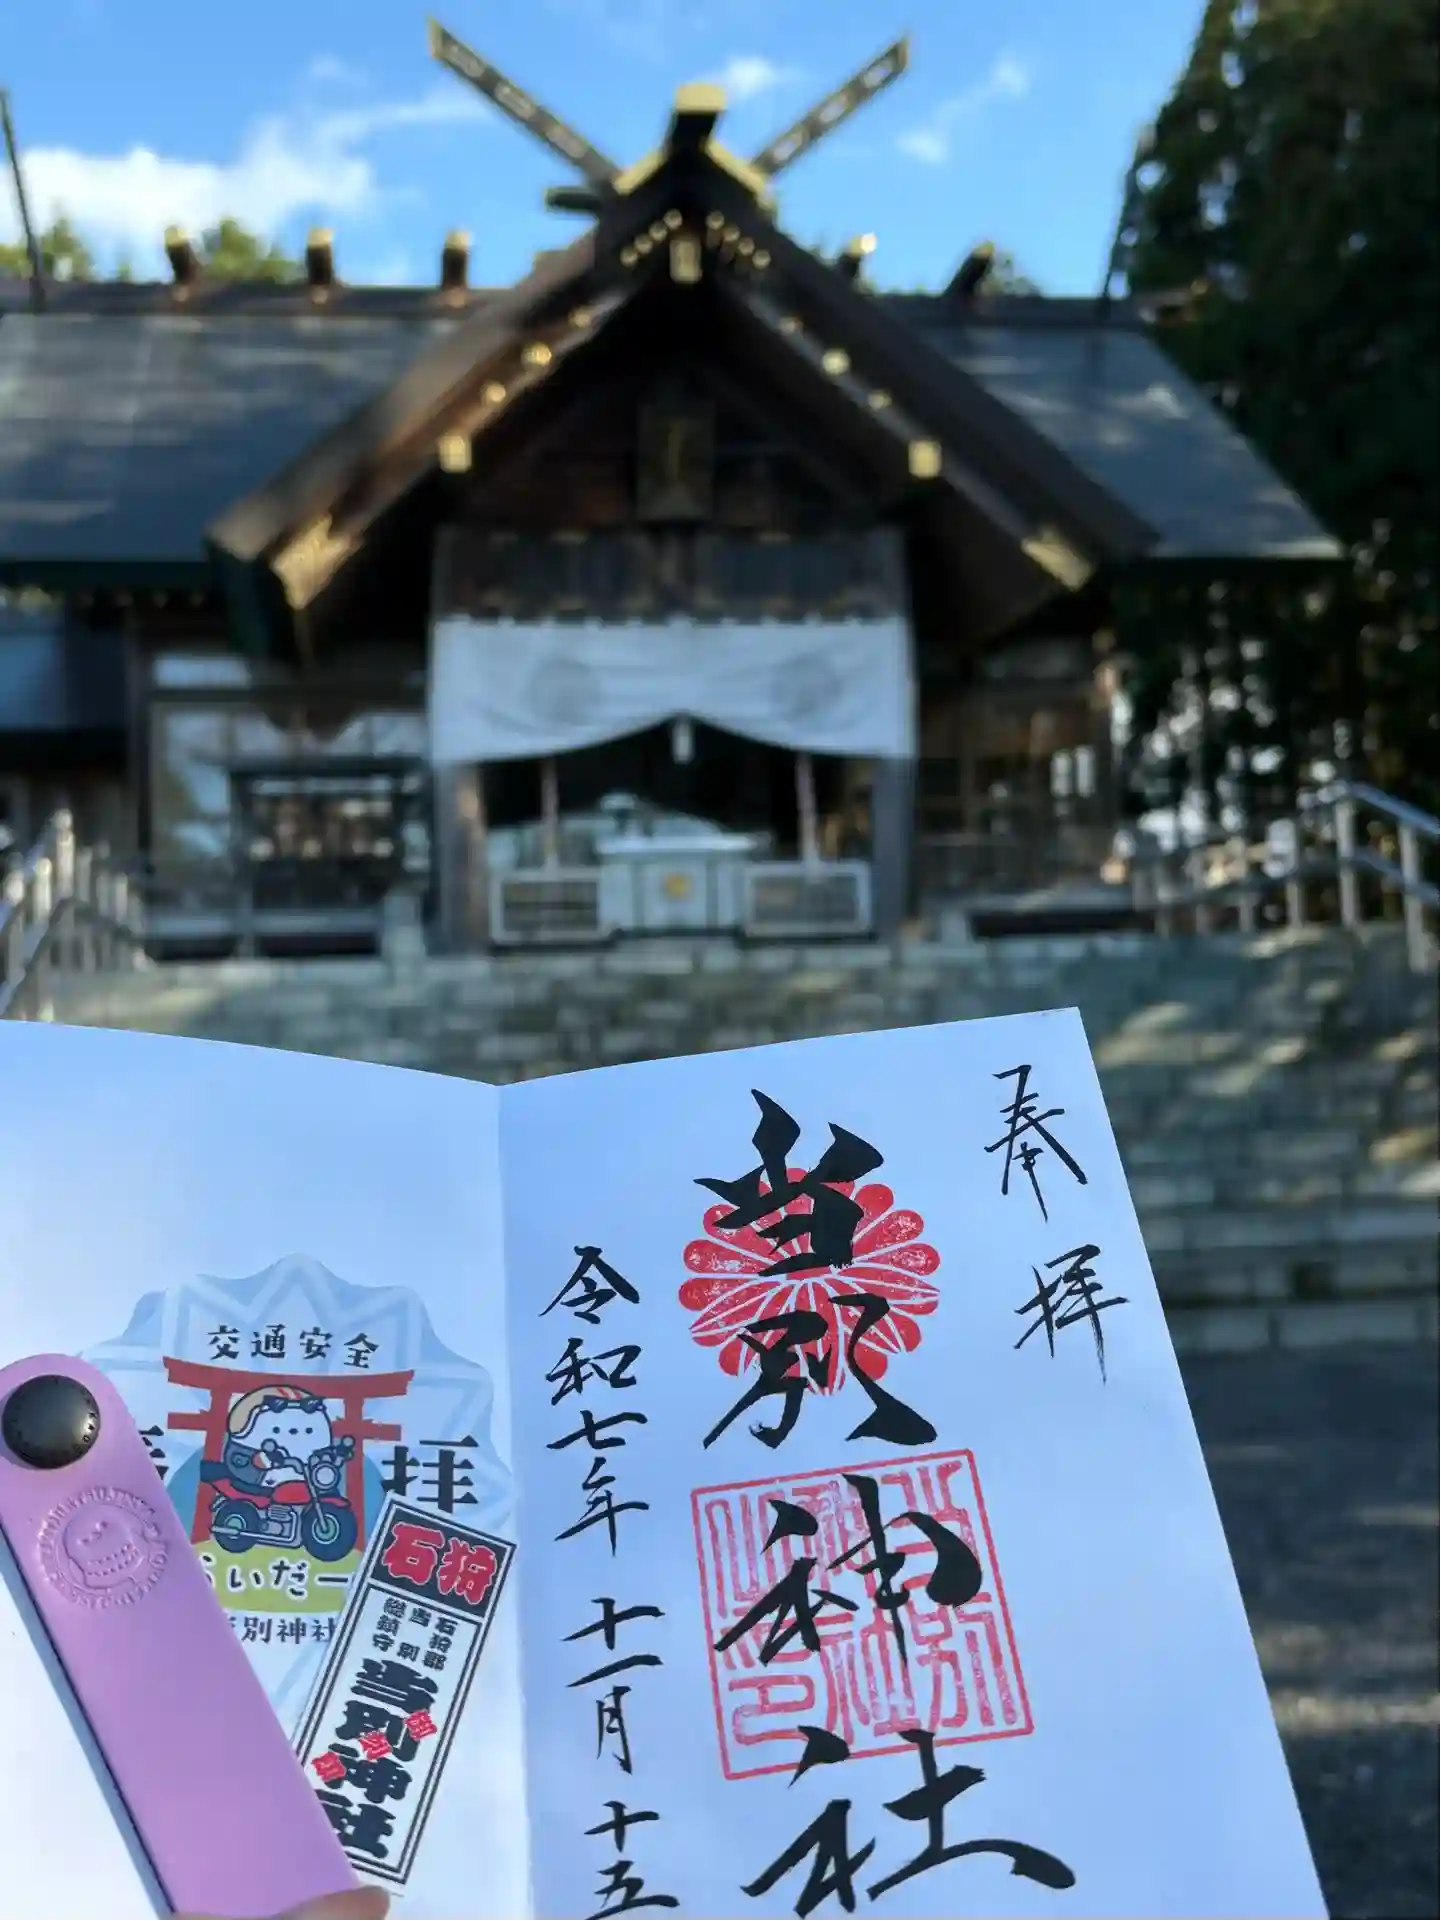 奉拝
当別神社
令和七年十一月十五
交通安全
拝
らいだー
別神社
石狩
石狩郡
当別
総鎮守
当別神社